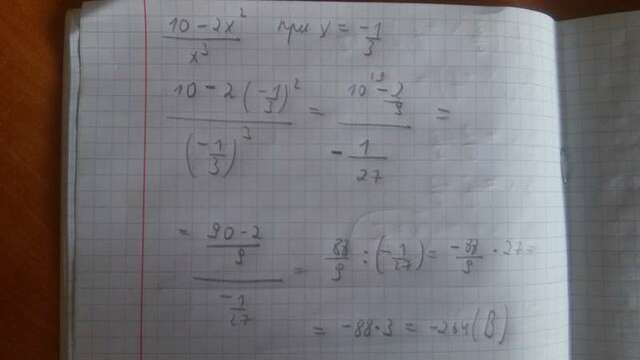 (10 - 2x²)/x³ при x = -1/3
(10 - 2(-1/3)²)/(-1/3)³ = (10 - 2/9)/(-1/27) =
= ((90 - 2)/9)/(-1/27) = 88/9 : (-1/27) = -88/9 · 27 =
= -88·3 = -264 (В)